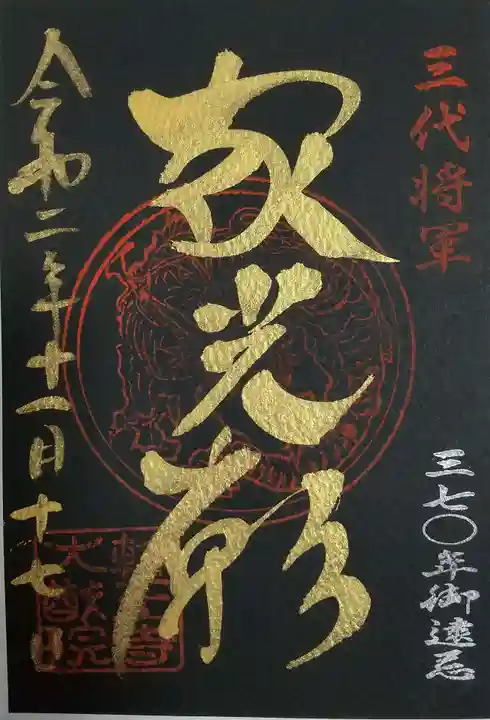 三代将軍
三七〇年御遠忌
家光廟
令和二年十一月十七日
輪王寺
大猷院